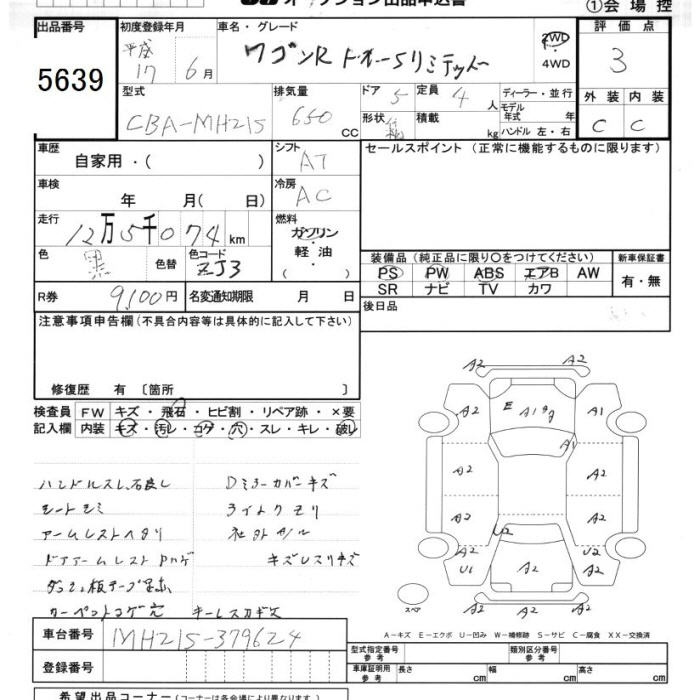 オークション出品申込書
①会場控
出品番号
5639
初度登録年月
平成
17 6月
車名・グレード
ワゴンR
2WD
4WD
評価点
3
外装 内装
C C
型式
CBA-MH21S
排気量
650 cc
ドア
5
定員
4 人
形状
積載
kg
ディーラー・並行
モデル年式 年
ハンドル 左・右
車歴
自家用・( )
シフト
AT
セールスポイント (正常に機能するものに限ります)
車検
年 月( 日)
冷房
AC
走行
12万5千074 km
燃料
ガソリン
軽油
色
黒
色替
色コード
ZJ3
装備品 (純正品に限り○をつけてください)
PS PW ABS エアB AW
SR ナビ TV カワ
新車保証書
有・無
R券
9,100円
名変通知期限 月 日
後日品
注意事項申告欄 (不具合内容等は具体的に記入して下さい)
修復歴 有 〔箇所 〕
検査員 FW キズ・飛石・ヒビ割・リペア跡・×要
記入欄 内装 キズ・汚レ・コゲ・穴・スレ・キレ・破レ
ハンドルスレ、石良し
Dミラーカバーキズ
シートシミ
アームレストヘタリ
社外
ドアアームレスト
カーペットコゲ穴
A2 A2
A2 E A1 A1
A1
A2 A2
A2 A2
U2
A2 U2
U1 A2 A2
スペア
A2
A-キズ E-エクボ U-凹み W-補修跡 S-サビ C-腐食 XX-交換済
車台番号
MH21S-379624
登録番号
型式指定番号
参考
類別区分番号
参考
車庫証明用
参考
長さ cm 幅 cm 高さ cm
希望出品コーナー (コーナーは各会場により異なります)